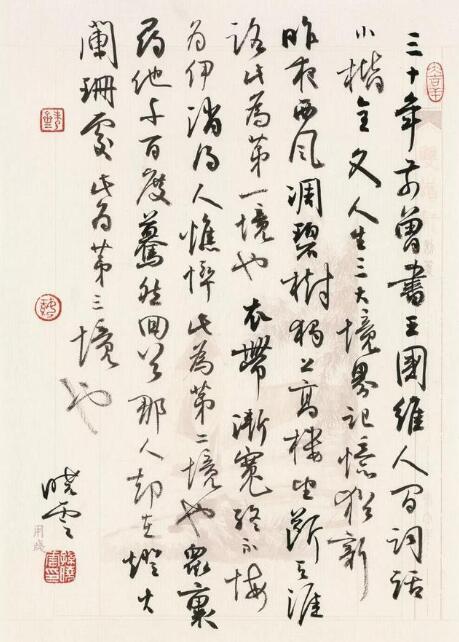 三十年前曾書王國維人间词话
小楷全文人生三大境界记憶猶新
昨夜西风凋碧樹獨上高楼望斷天涯
路此為第一境也衣帶漸寬終不悔
為伊消得人憔悴此為第二境也眾裏
尋他千百度驀然回首那人却在燈火
闌珊處此為第三境也
晓雲